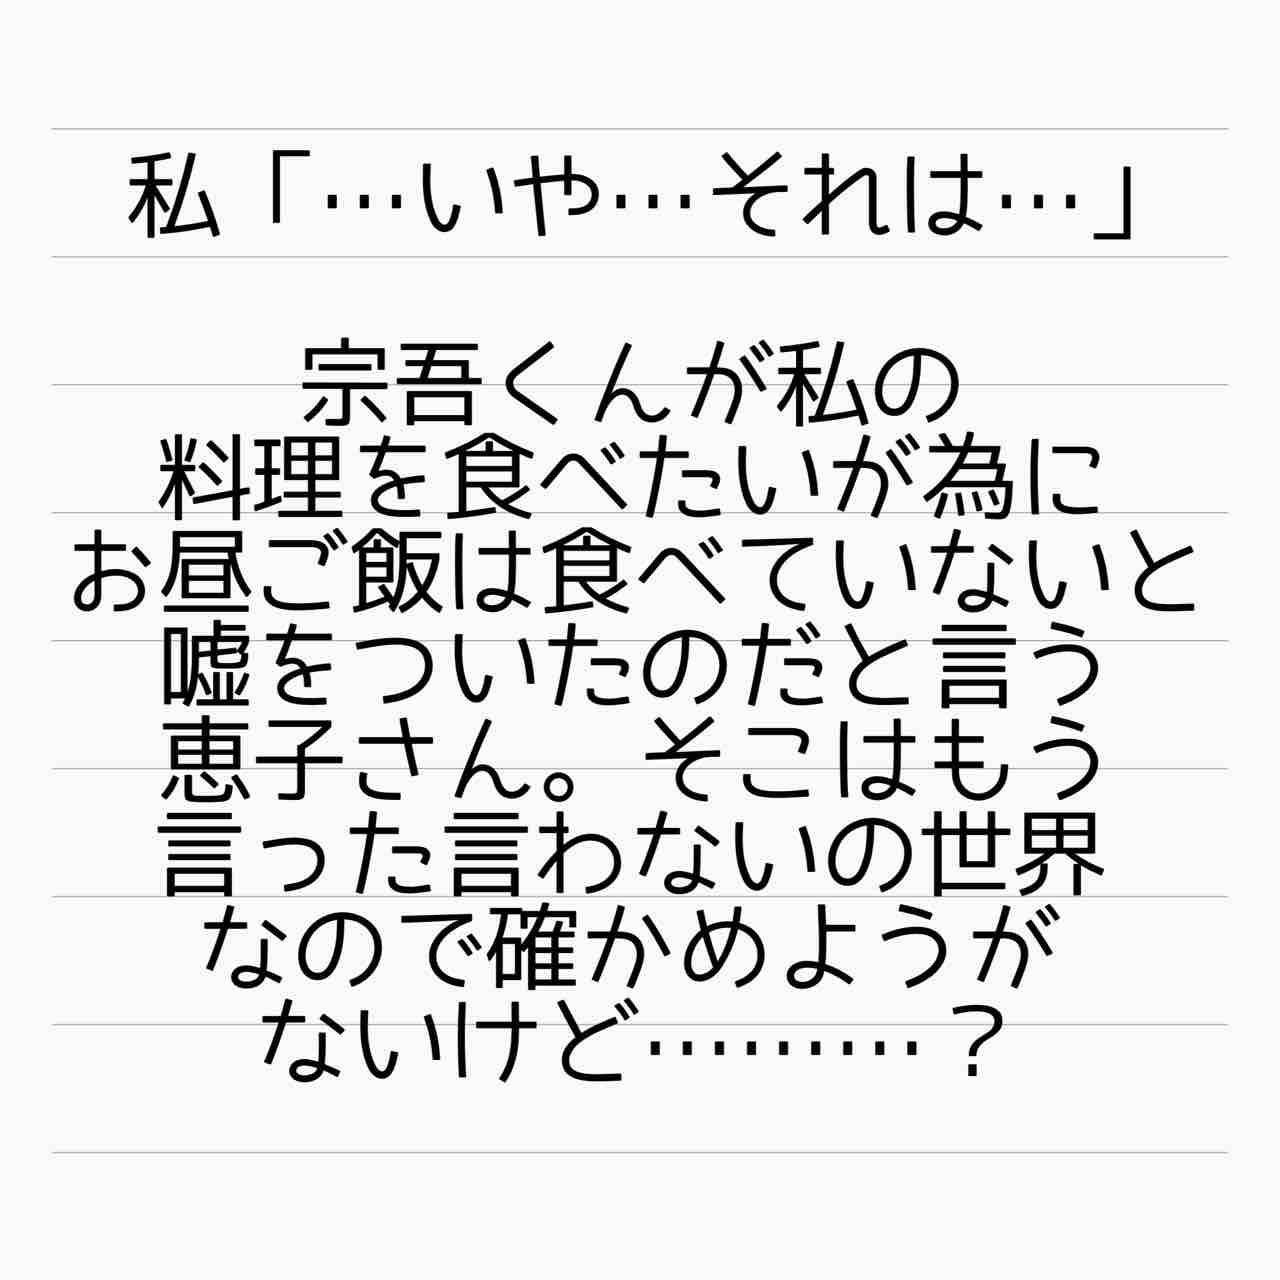 私「…いや…それは…」
宗吾くんが私の
料理を食べたいが為に
お昼ご飯は食べていないと
嘘をついたのだと言う
恵子さん。そこはもう
言った言わないの世界
なので確かめようが
ないけど………？